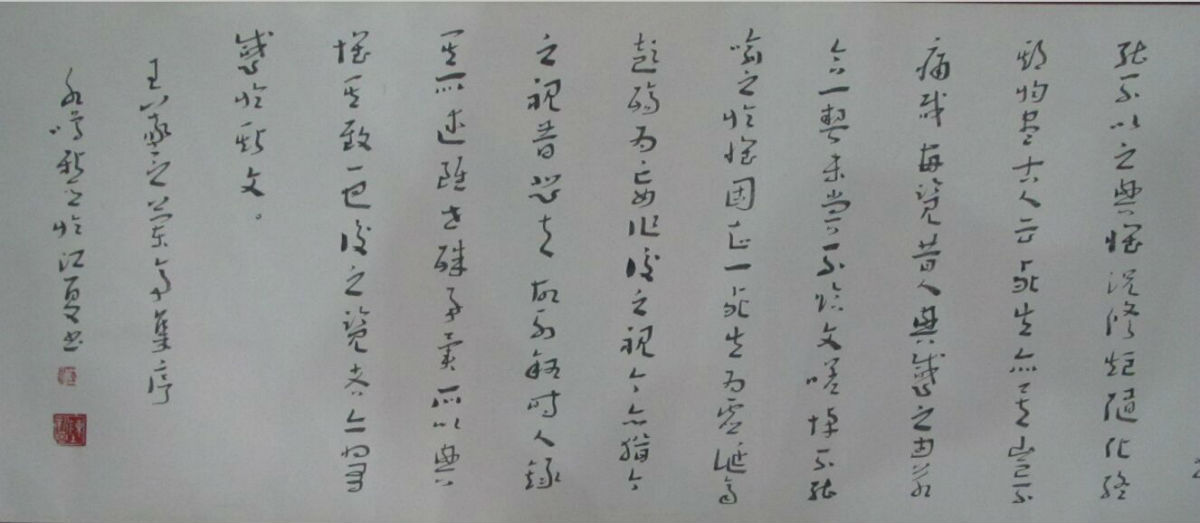 能不以之興懷況修短隨化終
期於盡古人云死生亦大矣豈不
痛哉每覽昔人興感之由若
合一契未嘗不臨文嗟悼不能
喻之於懷固知一死生為虛誕齊
彭殤為妄作後之視今亦猶今
之視昔悲夫故列敘時人錄
其所述雖世殊事異所以興
懷其致一也後之覽者亦將有
感於斯文。
王羲之蘭亭集序
於江夏书